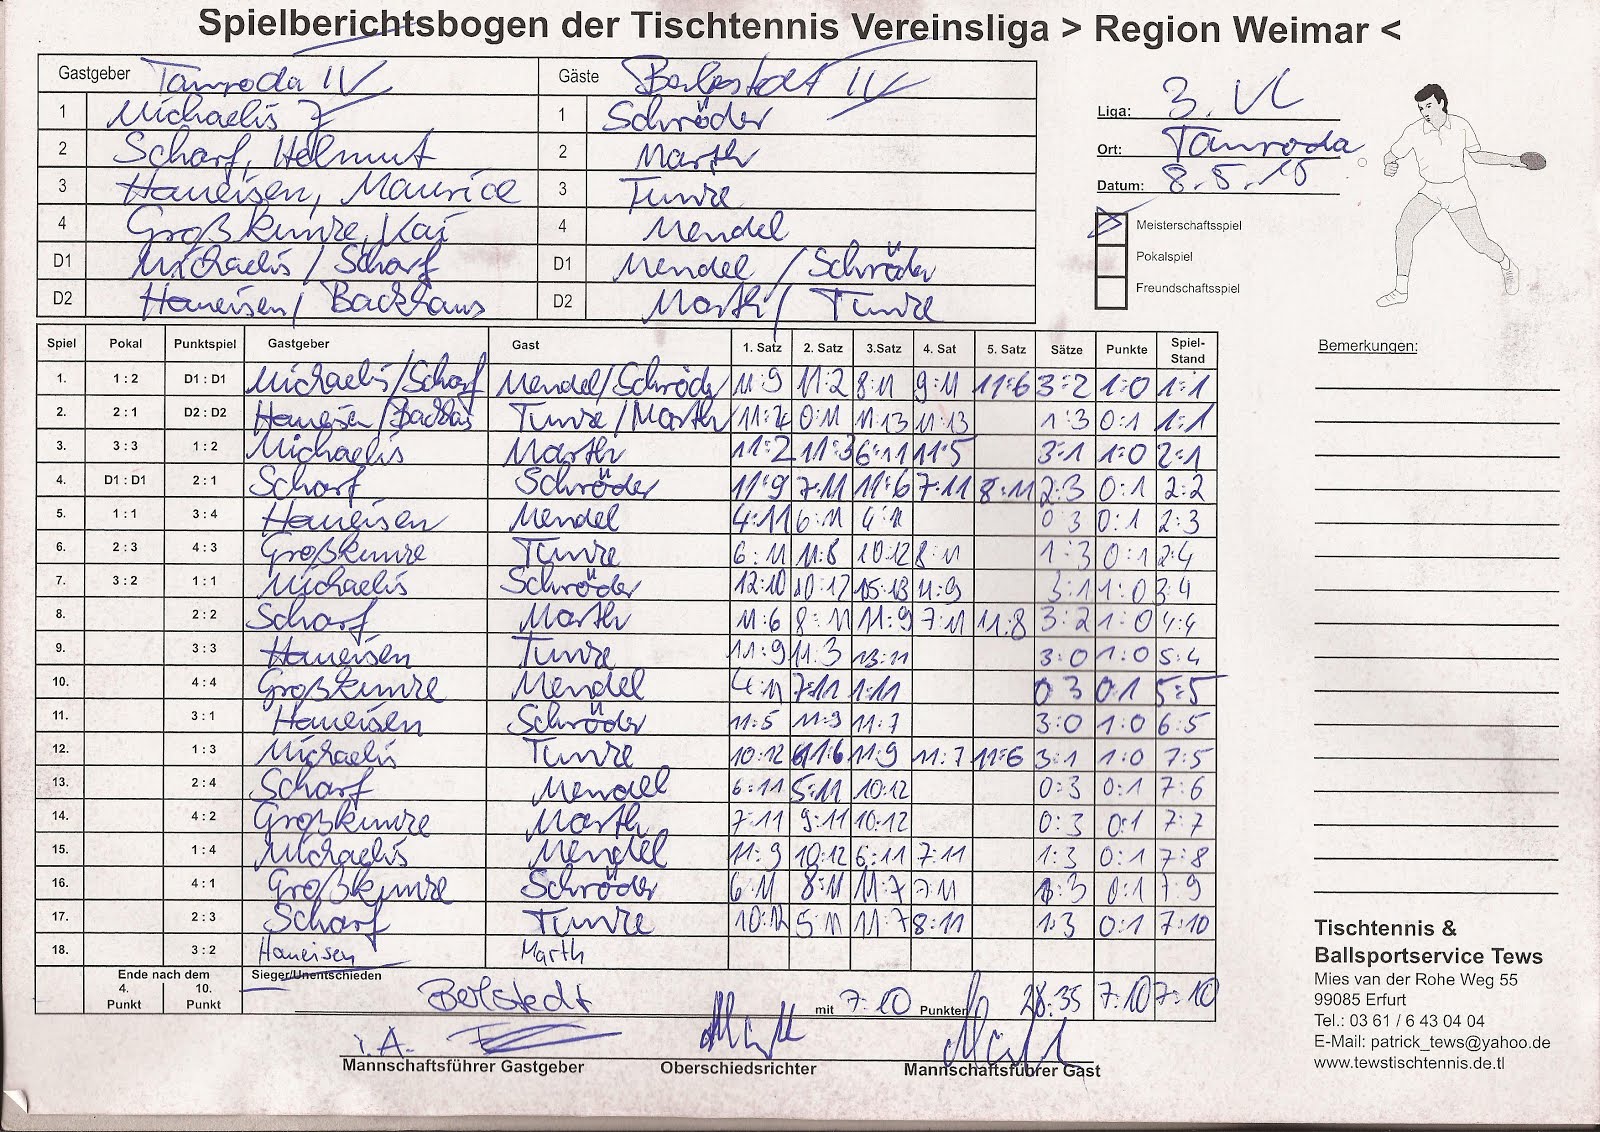 Spielberichtsbogen der Tischtennis Vereinsliga > Region Weimar <
Gastgeber Tanroda IV Gäste Berlstedt IV
1 Michaelis 1 Schröder
2 Scharf, Helmut 2 Marth
3 Haneisen, Maurice 3 Tunze
4 Großkunze, Kai 4 Mendel
D1 Michaelis / Scharf D1 Mendel / Schröder
D2 Haneisen / Backhaus D2 Marth / Tunze
Liga: 3. VL
Ort: Tanroda
Datum: 8.5.15
Meisterschaftsspiel
Pokalspiel
Freundschaftsspiel
Spiel Pokal Punktspiel Gastgeber Gast 1. Satz 2. Satz 3.Satz 4. Sat 5. Satz Sätze Punkte Spiel-Stand
1. 1 : 2 D1 : D1 Michaelis/Scharf Mendel/Schröder 11:9 11:2 8:11 9:11 11:6 3:2 1:0 1:1
2. 2 : 1 D2 : D2 Haneisen/Backhaus Tunze/Marth 0:11 11:13 11:13 1:3 0:1 1:1
3. 3 : 3 1 : 2 Michaelis Marth 11:2 11:3 6:11 11:5 3:1 1:0 2:1
4. D1 : D1 2 : 1 Scharf Schröder 11:9 7:11 11:6 7:11 8:11 2:3 0:1 2:2
5. 1 : 1 3 : 4 Haneisen Mendel 4:11 6:11 4:11 0 3 0:1 2:3
6. 2 : 3 4 : 3 Großkunze Tunze 6:11 11:8 10:12 8:11 1:3 0:1 2:4
7. 3 : 2 1 : 1 Michaelis Schröder 12:10 10:12 15:13 11:9 3:1 1:0 3:4
8. 2 : 2 Scharf Marth 11:6 8:11 11:9 7:11 11:8 3:2 1:0 4:4
9. 3 : 3 Haneisen Tunze 11:9 11:3 13:11 3:0 1:0 5:4
10. 4 : 4 Großkunze Mendel 4:11 7:11 1:11 0 3 0:1 5:5
11. 3 : 1 Haneisen Schröder 11:5 11:9 11:7 3:0 1:0 6:5
12. 1 : 3 Michaelis Tunze 10:12 11:6 11:9 11:7 11:6 3:1 1:0 7:5
13. 2 : 4 Scharf Mendel 6:11 5:11 10:12 0:3 0:1 7:6
14. 4 : 2 Großkunze Marth 7:11 9:11 10:12 0:3 0:1 7:7
15. 1 : 4 Michaelis Mendel 11:9 10:12 6:11 7:11 1:3 0:1 7:8
16. 4 : 1 Großkunze Schröder 6:11 8:11 11:7 7:11 1:3 0:1 7:9
17. 2 : 3 Scharf Tunze 10:12 5:11 11:7 8:11 1:3 0:1 7:10
18. 3 : 2 Haneisen Marth
Ende nach dem
4. Punkt 10. Punkt
Sieger/Unentschieden Berlstedt mit 7:10 Punkten 28:35 7:10 7:10
i.A.
Mannschaftsführer Gastgeber Oberschiedsrichter Mannschaftsführer Gast
Bemerkungen:
Tischtennis &
Ballsportservice Tews
Mies van der Rohe Weg 55
99085 Erfurt
Tel.: 03 61 / 6 43 04 04
E-Mail: patrick_tews@yahoo.de
www.tewstischtennis.de.tl